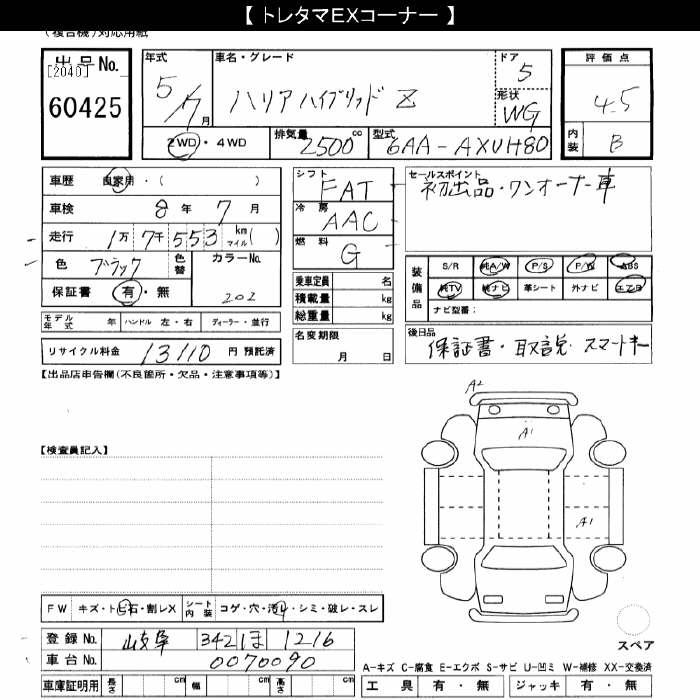 【 トレタマEXコーナー 】
(複合機)対応用紙
出品No.
[2040]
60425
年式
5/7月
車名・グレード
ハリアハイブリッド Z
ドア
5
形状
WG
2WD・4WD
排気量
2500cc
型式
6AA-AXUH80
評価点
4.5
内装
B
車歴 自家用・( )
車検 8年 7月
走行 1万 7千 553 km マイル( )
色 ブラック
色替
カラーNo.
202
保証書 有・無
モデル年式 年 ハンドル 左・右 ディーラー・並行
リサイクル料金 13110 円 預託済
シフト
FAT
冷房
AAC
燃料
G
乗車定員 名
積載量 kg
総重量 kg
名変期限
月 日
セールスポイント
初出品・ワンオーナー車
装備品
S/R 純A/W P/S P/W ABS
純TV 純ナビ 革シート 外ナビ エアB
ナビ型番:
後日品
保証書・取説・スマートキー
【出品店申告欄(不良箇所・欠品・注意事項等)】
【検査員記入】
A2
A1
A1
FW キズ・トビ石・割レX
シート内装 コゲ・穴・汚レ・シミ・破レ・スレ
登録No. 岐阜 342 ほ 1216
車台No. 0070090
車庫証明用 長さ cm 幅 cm 高さ cm
スペア
A-キズ C-腐食 E-エクボ S-サビ U-凹ミ W-補修 XX-交換済
工具 有・無 ジャッキ 有・無